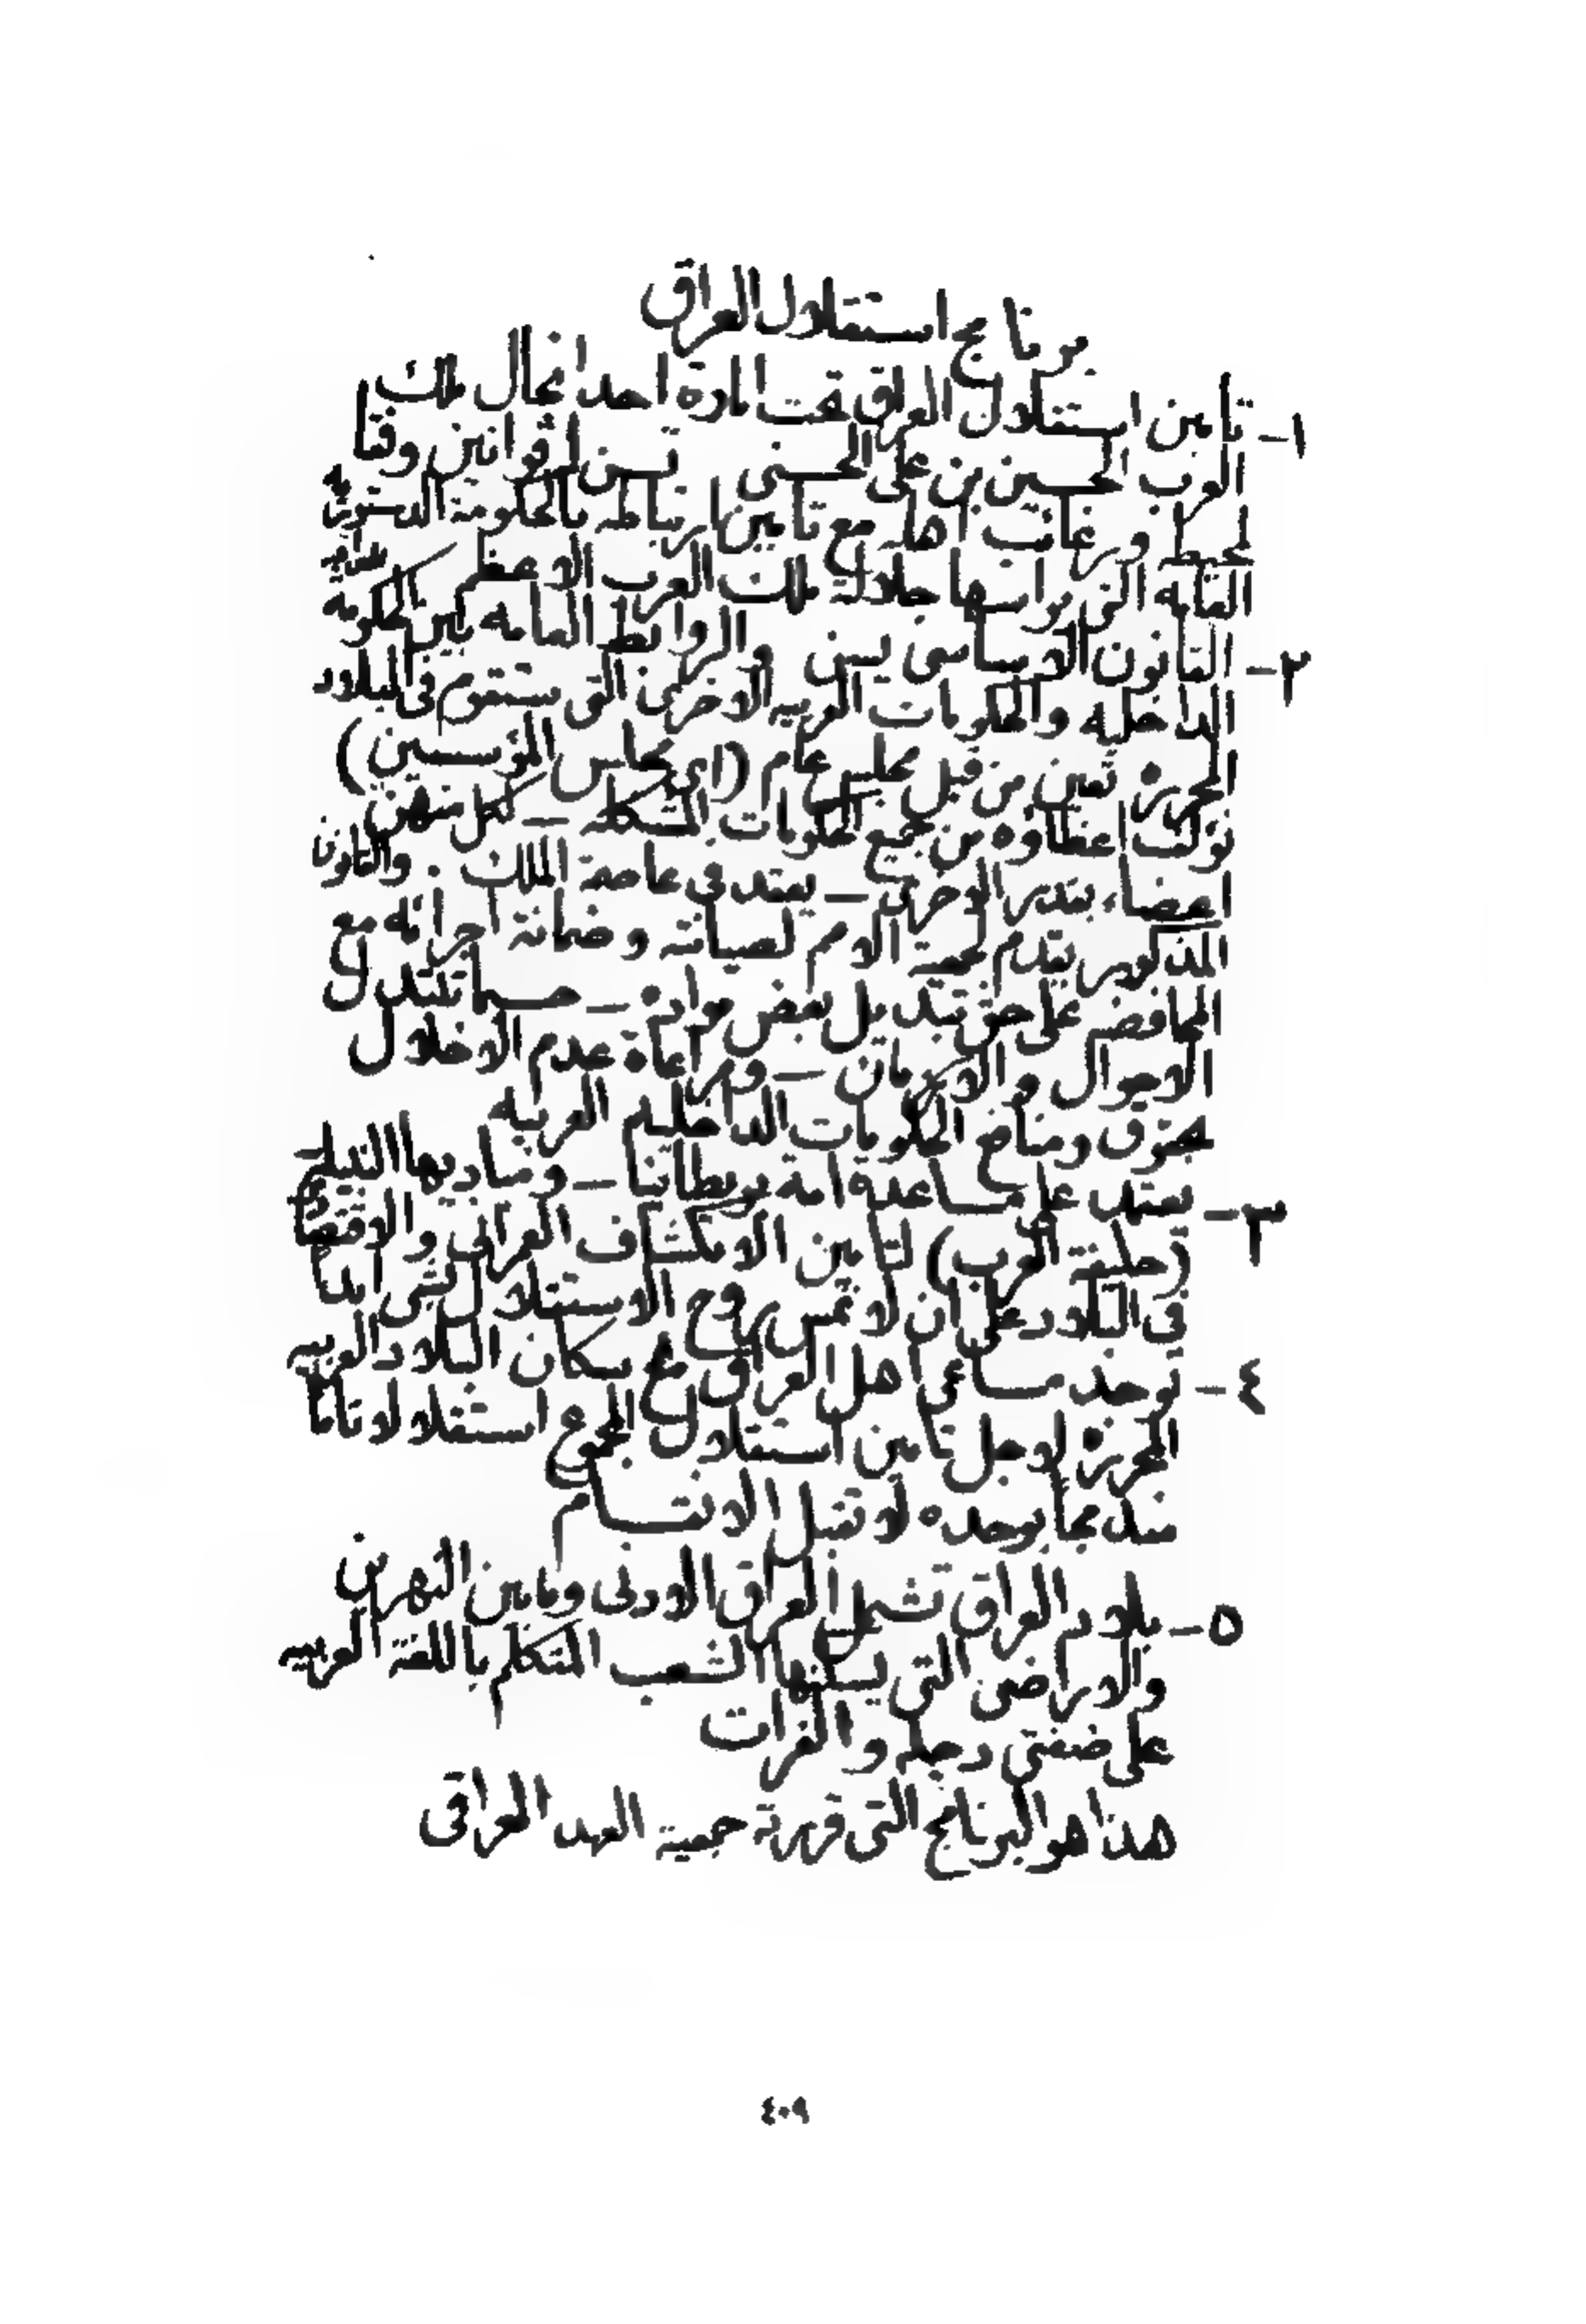 برنامج استقلال العراق
١- تأمين استقلال العراق تحت امارة احد انجال ملك
العرب الحسين بن علي الحسني تسن له قوانين وفقا
لمحيط ورغائب اهله مع تأمين ارتباطه بالحكومة الدستورية
العامه التي يرأسها جلالة ملك العرب الاعظم
٢- القانون الاساسي يسن والروابط العامه بين الحكومه
الداخليه والحكومات العربيه الاخرى التي ستقوم في البلاد
المحرره تعين من قبل مجلس عام (اي مجلس المؤسسين)
اعضاؤه من جميع الحكومات المتشكله —
اعضاء بقدر الاخرى — يعقد في عاصمة الملك . والقانون
المذكور يقدم لعصبة الامم لصيانته وضمانة اجرائه مع
المحافضه على حق تبديل بعض مواده — حسبما تتبدل
الاحوال والازمان — ومراعاة عدم الاخلال
بحقوق ومنافع الحكومات الداخليه العربيه
٣- مساعدة امة بريطانيا — ومباديها النبيله
(حليفة العرب) لتأمين الانكشاف العمراني والاقتصادي
في البلاد على ان لا تمس روح الاستقلال بشئ ابدا
٤- توحد مساعي اهل العراق مع سكان البلاد العربيه
المحرره لاجل تأمين استقلال المجموع استقلالا تاما
مندمجا بوحده لا تقبل الانقسام
٥- بلادم العراق تشمل العراق الادنى ومابين النهرين
والاراضي التي يسكنها الشعب المتكلم باللغة العربيه
على ضفتي دجله والفرات
هذا هو البرنامج التي قررته جمعية العهد العراقي
٤٠٩